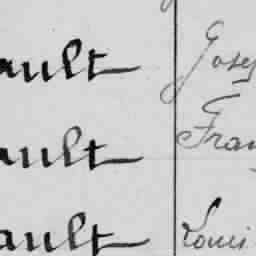 ault Josep
ault Fran
ault Louis